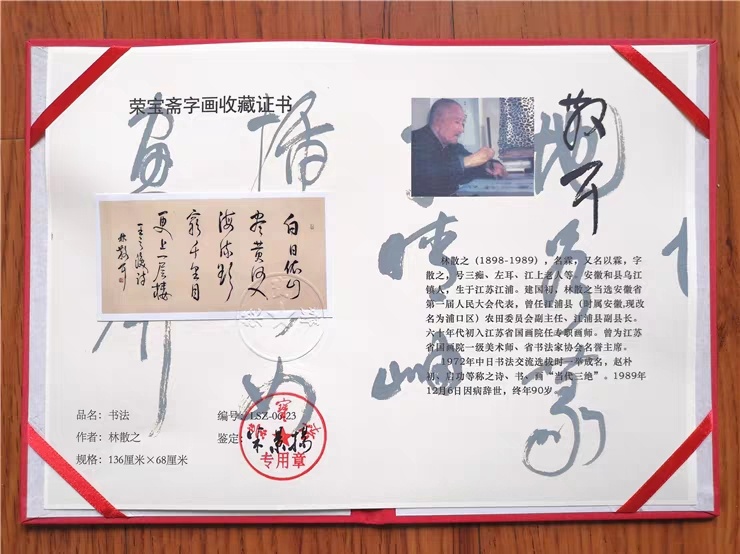 荣宝斋字画收藏证书
白日依山
尽黄河入
海流欲
穷千里目
更上一层楼
王之涣诗
林散耳
品名：书法
编号：
作者：林散之
鉴定：
规格：136厘米×68厘米
专用章
散耳
林散之（1898-1989），名霖，又名以霖，字
散之，号三痴、左耳、江上老人等。安徽和县乌江
镇人，生于江苏江浦。建国初，林散之当选安徽省
第一届人民大会代表，曾任江浦县（时属安徽,现改
名为浦口区）农田委员会副主任、江浦县副县长。
六十年代初入江苏省国画院任专职画师。曾为江苏
省国画院一级美术师、省书法家协会名誉主席。
1972年中日书法交流选拔时一举成名，赵朴
初、启功等称之诗、书、画“当代三绝”。1989年
12月6日因病辞世，终年90岁。